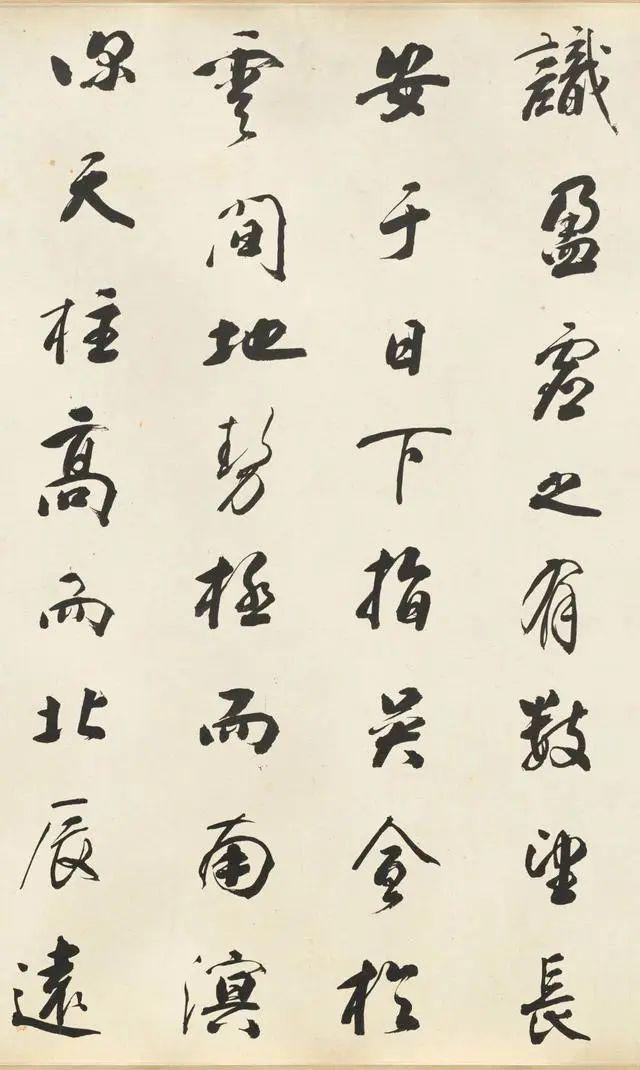 識盈虛之有數望長
安于日下指吳會於
雲間地勢極而南溟
深天柱高而北辰遠